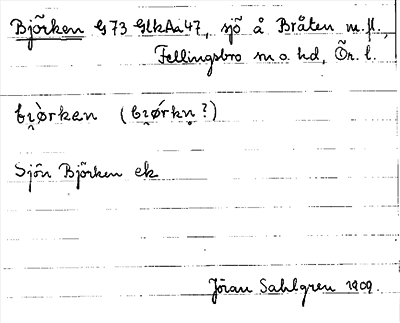 Björken G 73 GlkAa 47, sjö å Bråten m.fl.,
Fellingsbro sn o. hd, Ör. l.
bi̯ø̀rkan (bi̯ǿrkn̥?)
Sjön Björken ek
Jöran Sahlgren 1909.